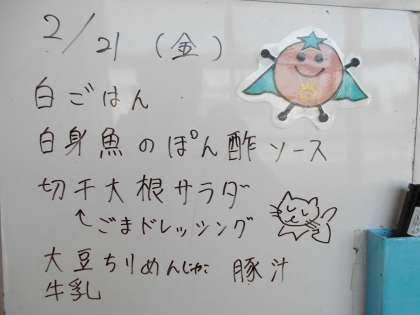 2/21 (金)
白ごはん
白身魚のぽん酢ソース
切干大根サラダ
↑ごまドレッシング
大豆ちりめんじゃこ 豚汁
牛乳